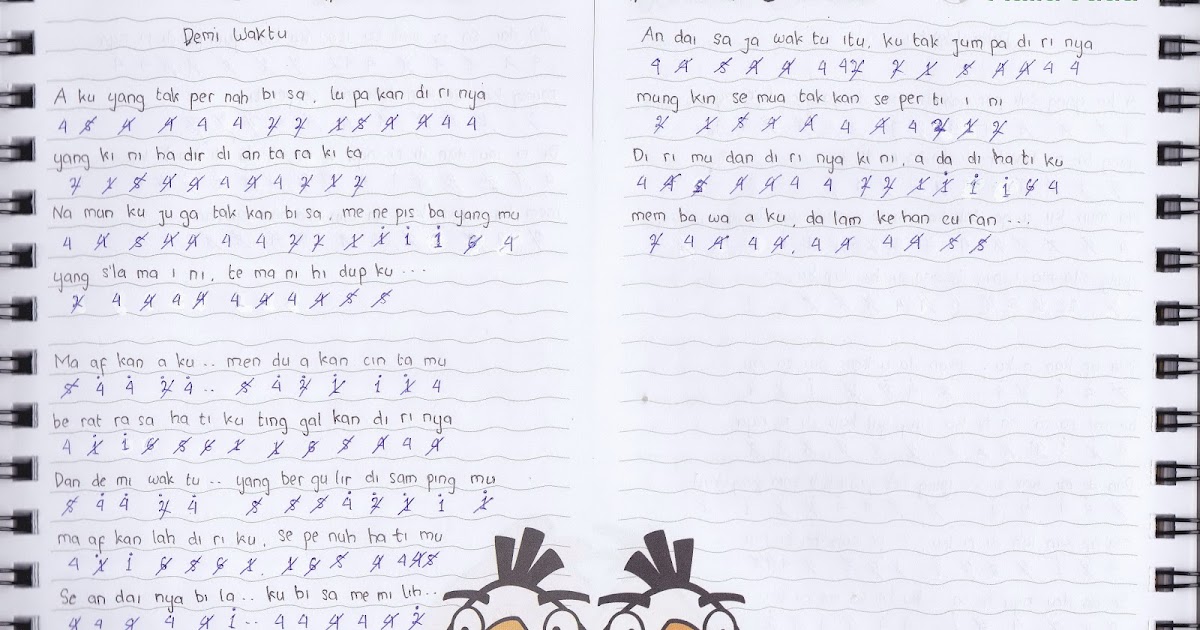 Demi Waktu
A ku yang tak per nah bi sa, lu pa kan di ri nya
4 5̸ 4̸ 4̸ 4 4 2̸ 2̸ 1̸ 5̸ 4̸ 4̸ 4 4
yang ki ni ha dir di an ta ra ki ta
2̸ 1̸ 5̸ 4̸ 4̸ 4 4̸ 4 2̸ 1̸ 2̸
Na mun ku ju ga tak kan bi sa, me ne pis ba yang mu
4 4̸ 5̸ 4̸ 4̸ 4 4 2̸ 2̸ 1̸ 1̸̇ 1̇ 1̇ 6̸ 4
yang s'la ma i ni, te ma ni hi dup ku ...
2̸ 4 4̸ 4 4̸ 4 4̸ 4 4̸ 5̸ 5̸
Ma af kan a ku .. men du a kan cin ta mu
5̸ 4̇ 4̇ 2̸̇ 4̇ .. 5̸ 4̇ 2̸̇ 1̸̇ 1̇ 1̸̇ 4
be rat ra sa ha ti ku ting gal kan di ri nya
4 1̸̇ 1̇ 6̸ 5̸ 6̸ 1̸ 1̸ 6̸ 5̸ 4̸ 4 4̸
Dan de mi wak tu .. yang ber gu lir di sam ping mu
5̸ 4̇ 4̇ 2̸̇ 4̇ 5̸ 5̸ 5̸ 4̇ 2̸̇ 1̸̇ 1̇ 1̸̇
ma af kan lah di ri ku, se pe nuh ha ti mu
4 1̸̇ 1̇ 6̸ 5̸ 6̸ 1̸. 1̸ 6̸ 5̸ 4̸ 4 4̸ 5̸
Se an dai nya bi la .. ku bi sa me mi lih ..
4̸ 4 4̸ 4 4̸ 1̇ .. 4 4 4̸ 4 4̸ 2̸
An dai sa ja wak tu itu, ku tak jum pa di ri nya
4 4̸ 5̸ 4̸ 4̸ 4 4 2̸ 2̸ 1̸ 5̸ 4̸ 4̸ 4 4
mung kin se mua tak kan se per ti i ni
2̸ 1̸ 5̸ 4̸ 4̸ 4 4̸ 4 2̸ 1̸ 2̸
Di ri mu dan di ri nya ki ni, a da di ha ti ku
4 4̸ 5̸ 4̸ 4̸ 4 4 2̸ 2̸ 1̸ 1̸̇ 1̇ 1̇ 6̸ 4
mem ba wa a ku, da lam ke han cu ran ...
2̸ 4 4̸ 4 4̸. 4 4̸ 4 4̸ 5̸ 5̸